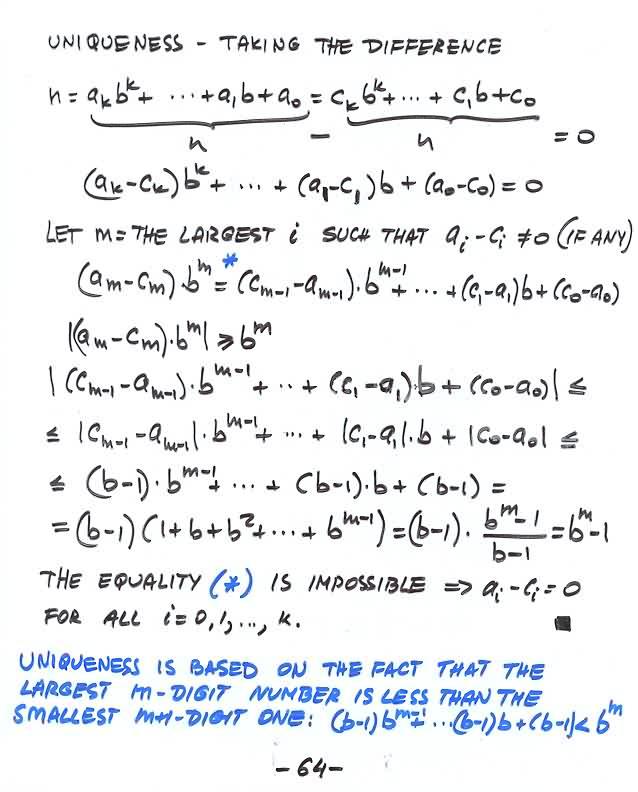 UNIQUENESS - TAKING THE DIFFERENCE
n = aₖbᵏ + ... + a₁b + a₀ = cₖbᵏ + ... + c₁b + c₀
n - n = 0
(aₖ-cₖ)bᵏ + ... + (a₁-c₁)b + (a₀-c₀) = 0
LET m = THE LARGEST i SUCH THAT aᵢ-cᵢ ≠ 0 (IF ANY)
(aₘ-cₘ)·bᵐ =* (cₘ₋₁-aₘ₋₁)·bᵐ⁻¹ + ... + (c₁-a₁)b + (c₀-a₀)
|(aₘ-cₘ)·bᵐ| ≥ bᵐ
|(cₘ₋₁-aₘ₋₁)·bᵐ⁻¹ + ... + (c₁-a₁)·b + (c₀-a₀)| ≤
≤ |cₘ₋₁-aₘ₋₁|·bᵐ⁻¹ + ... + |c₁-a₁|·b + |c₀-a₀| ≤
≤ (b-1)·bᵐ⁻¹ + ... + (b-1)·b + (b-1) =
= (b-1)(1+b+b²+...+bᵐ⁻¹) = (b-1)·(bᵐ-1)/(b-1) = bᵐ-1
THE EQUALITY (*) IS IMPOSSIBLE ⇒ aᵢ-cᵢ = 0
FOR ALL i = 0,1,..., k. ■
UNIQUENESS IS BASED ON THE FACT THAT THE
LARGEST m-DIGIT NUMBER IS LESS THAN THE
SMALLEST m+1-DIGIT ONE: (b-1)bᵐ⁻¹+...(b-1)b+(b-1)<bᵐ
-64-